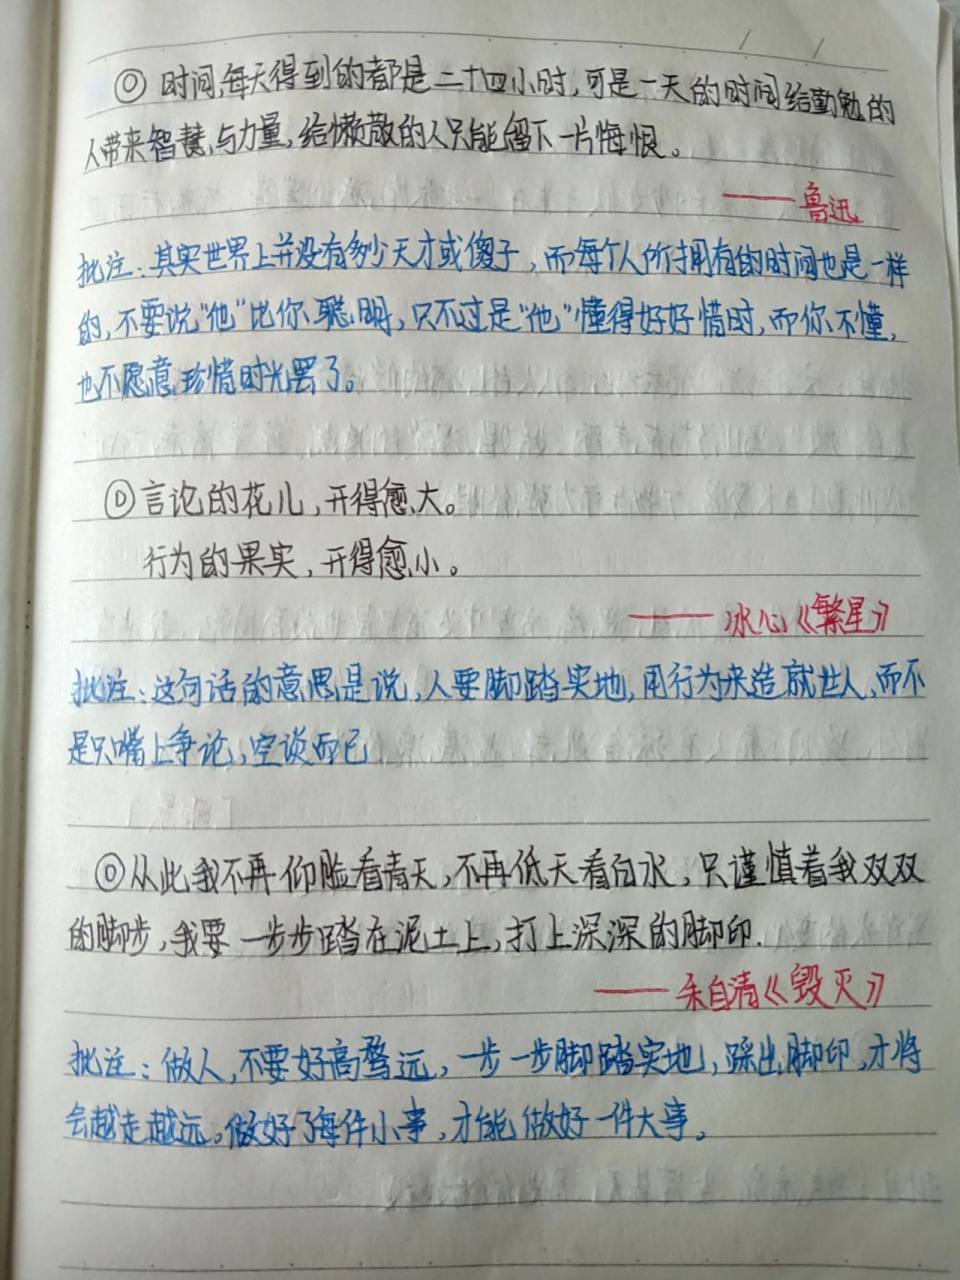 ① 时间,每天得到的都是二十四小时,可是一天的时间给勤勉的
人带来智慧与力量,给懒散的人只能留下一片悔恨。
——鲁迅
批注:其实世界上并没有多少天才或傻子,而每个人所拥有的时间也是一样
的,不要说“他”比你聪明,只不过是“他”懂得好好惜时,而你不懂,
也不愿意珍惜时光罢了。
① 言论的花儿,开得愈大。
行为的果实,开得愈小。
——冰心《繁星》
批注:这句话的意思是说,人要脚踏实地,用行为来造就世人,而不
是只嘴上争论,空谈而已
① 从此我不再仰脸看青天,不再低天看白水,只谨慎着我双双
的脚步,我要一步步踏在泥土上,打上深深的脚印.
——朱自清《毁灭》
批注:做人,不要好高骛远,一步一步脚踏实地,踩出脚印,才将
会越走越远。做好了每件小事,才能做好一件大事。